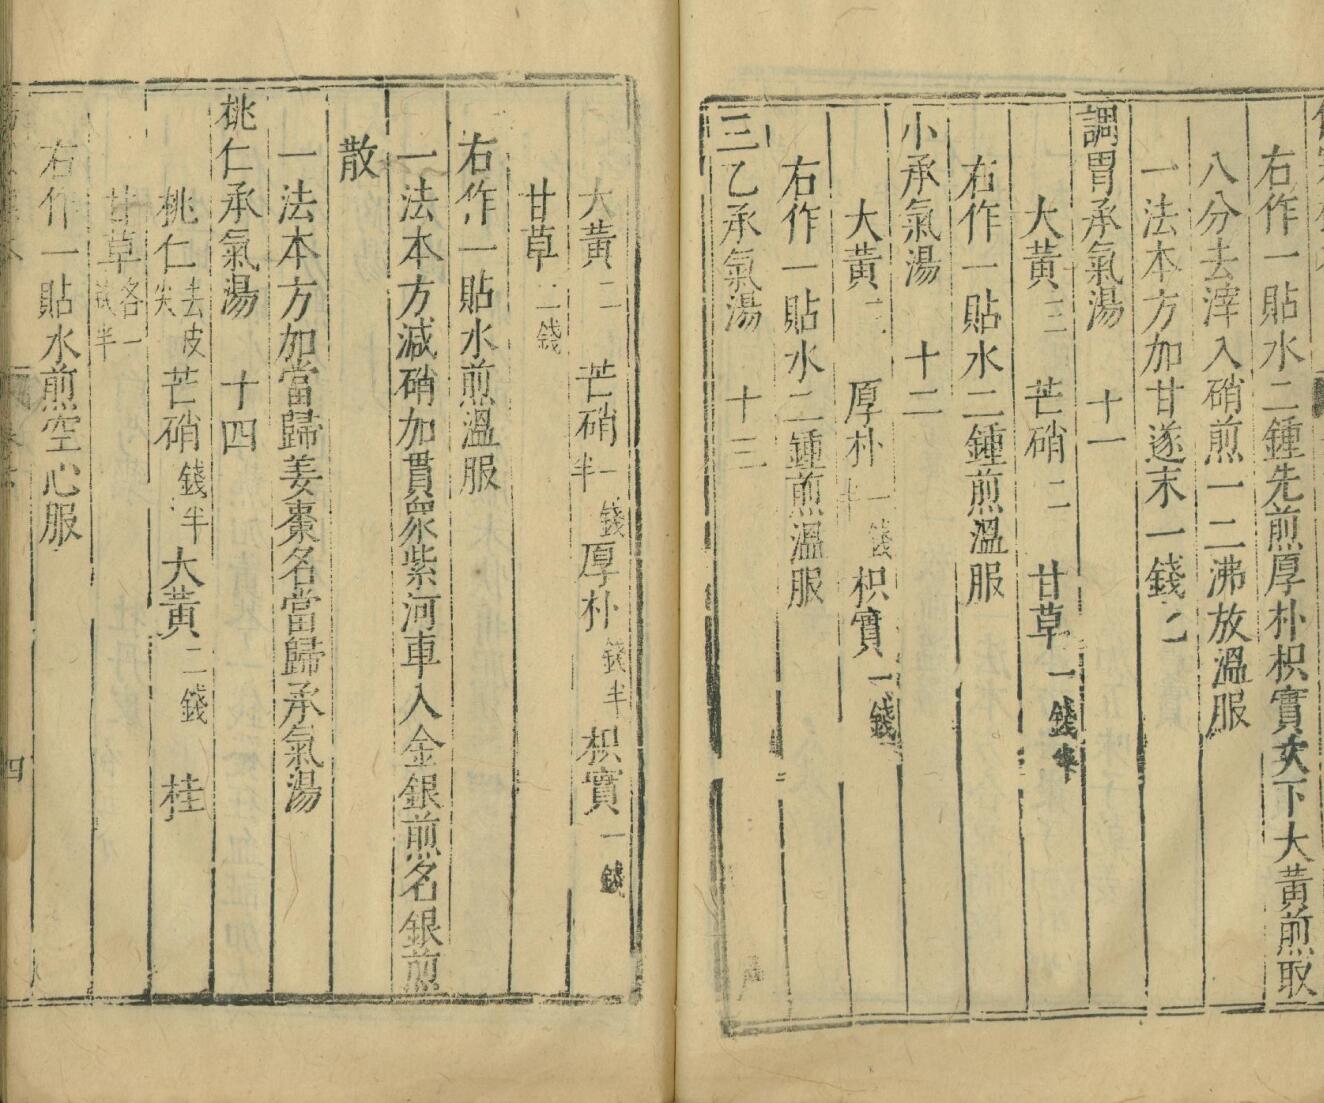 右作一貼水二鍾先煎厚朴枳實次下大黃煎取
八分去滓入硝煎一二沸放溫服
一法本方加甘遂末一錢匕
調胃承氣湯 十一
大黃三 芒硝二 甘草一錢半
右作一貼水二鍾煎溫服
小承氣湯 十二
大黃二 厚朴一錢半 枳實一錢
右作一貼水二鍾煎溫服
三乙承氣湯 十三
大黃二 芒硝一錢半 厚朴錢半 枳實一錢
甘草二錢
右作一貼水煎溫服
一法本方減硝加貫衆紫河車入金銀煎名銀煎
散
一法本方加當歸姜棗名當歸承氣湯
桃仁承氣湯 十四
桃仁去皮尖 芒硝錢半 大黃二錢 桂
甘草各一錢半
右作一貼水煎空心服
四